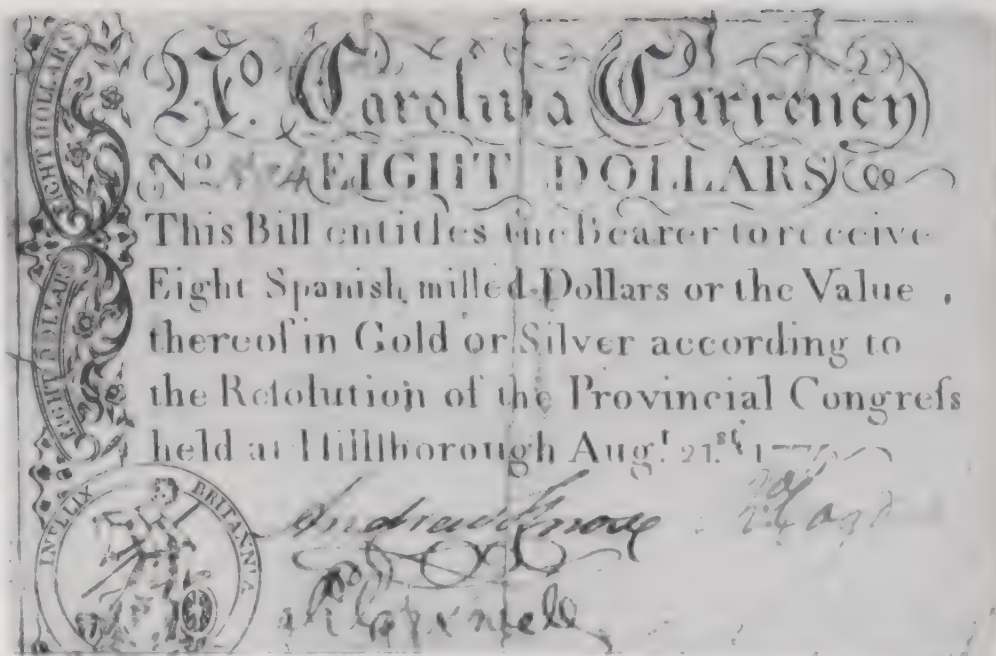 EIGHT DOLLARS
EIGHT DOLLARS
No. Carolina Currency
No EIGHT DOLLARS
This Bill entitles the Bearer to receive
Eight Spanish milled Dollars or the Value
thereof in Gold or Silver according to
the Reſolution of the Provincial Congreſs
held at Hillſborough Augt. 21.st
INFELIX BRITANNIA
Andrew Knox